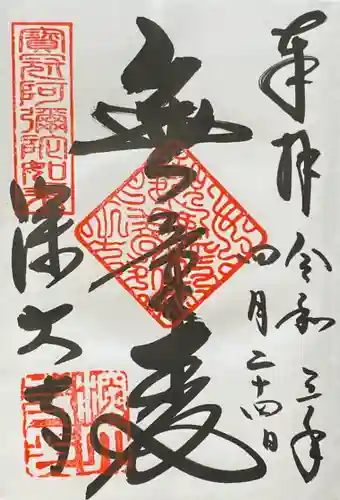 奉拝
令和三年
四月二十四日
無量寿
寳冠阿彌陀如来
深大寺